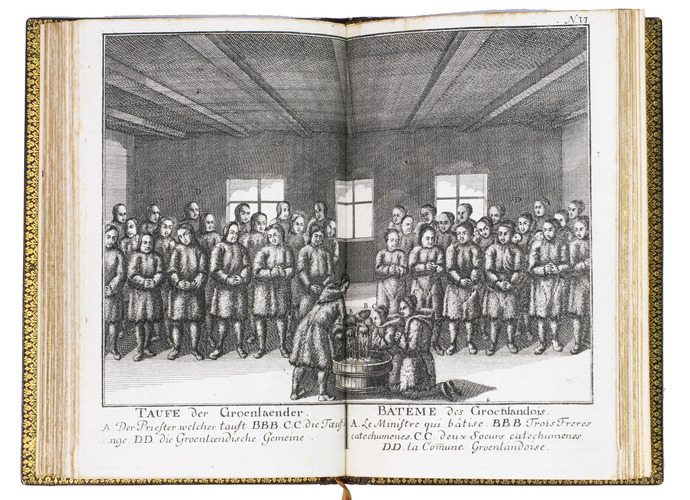 N. VI
D
D
B C
TAUFE der Groenlaender.
A. Der Priester welcher tauft BBB. C.C. die Täuf-
nge D.D. die Groenlændische Gemeine
BATÊME des Groenlandois.
A. Le Ministre qui bâtise. BBB Trois Freres
catechumenes. C.C. deux Soeurs catechumenes.
D.D. la Com̄une Groenlandoise.